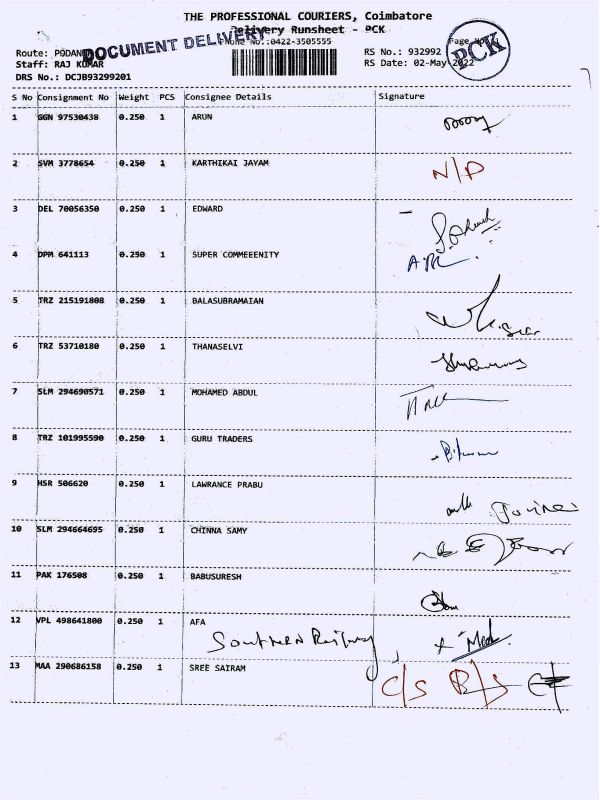 THE PROFESSIONAL COURIERS, Coimbatore
Delivery Runsheet - PCK
Phone No.:0422-3505555
DOCUMENT DELIVERY
PCK
Route: PODANUR
RS No.: 932992
Staff: RAJ KUMAR
RS Date: 02-May 2022
DRS No.: DCJB93299201
S No Consignment No Weight PCS Consignee Details Signature
1 GGN 97530438 0.250 1 ARUN
2 SVM 3778654 0.250 1 KARTHIKAI JAYAM N/D
3 DEL 70056350 0.250 1 EDWARD
4 DPM 641113 0.250 1 SUPER COMMEEENITY
5 TRZ 215191808 0.250 1 BALASUBRAMAIAN
6 TRZ 53710180 0.250 1 THANASELVI
7 SLM 294690571 0.250 1 MOHAMED ABDUL
8 TRZ 101995590 0.250 1 GURU TRADERS
9 HSR 506620 0.250 1 LAWRANCE PRABU
10 SLM 294664695 0.250 1 CHINNA SAMY
11 PAK 176508 0.250 1 BABUSURESH
12 VPL 498641800 0.250 1 AFA
Southern Railway
13 MAA 290686158 0.250 1 SREE SAIRAM C/S